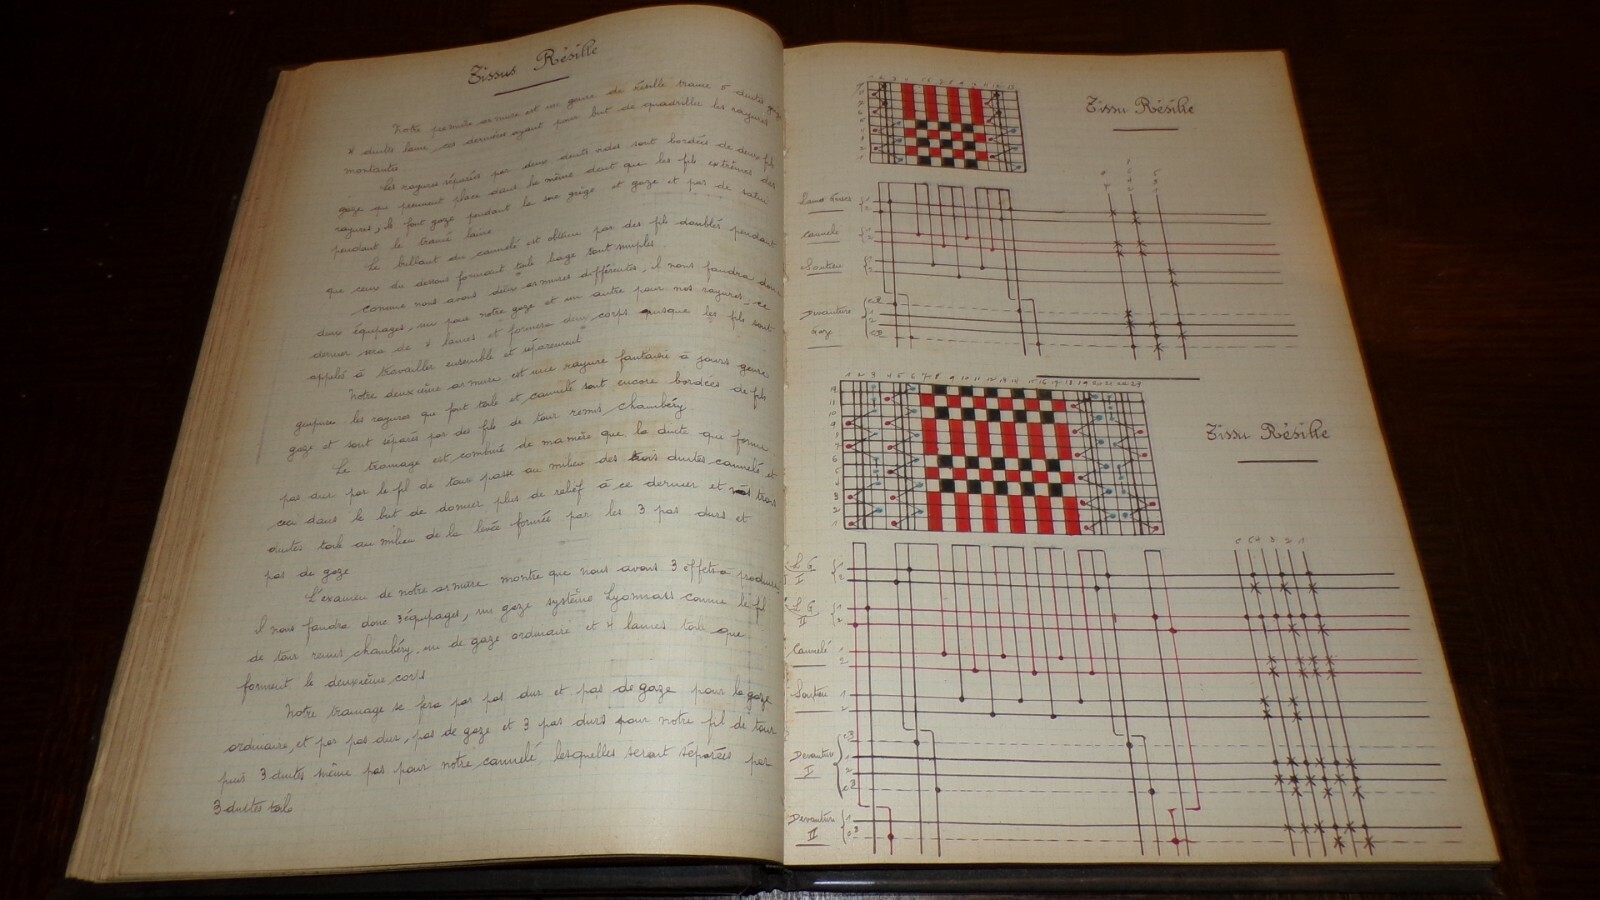 Tissus Résille
Notre première armure est un genre de résille tramé 5 duites gaze
8 duites laine, ces dernières ayant pour but de quadriller les rayures
montantes
Les rayures séparées par deux dents vides sont bordées de deux fils
gaze qui peuvent placés dans la même dent que les fils extrêmes des
rayures, ils font gaze pendant la soie grège et gaze et pas de satin
pendant le tramé laine
Le brillant du cannelé est obtenu par des fils doublés pendant
que ceux du dessous formant toile sont simples
Comme nous avons deux armures différentes, il nous faudra donc
deux équipages, un pour notre gaze et un autre pour nos rayures, ce
dernier sera de 4 lames et formera deux corps puisque les fils sont
appelés à travailler ensemble et séparément
Notre deuxième armure est une rayure fantaisie à jours genre
guipure les rayures qui font toile et cannelé sont encore bordées de fils
gaze et sont séparées par des fils de tour remis chambéry
Le tramage est combiné de manière que la duite que forme
pas dur par le fil de tour passe au milieu des trois duites cannelé et
ceci dans le but de donner plus de relief à ce dernier et trois
duites toile au milieu de la levée formée par les 3 pas durs et
pas de gaze
L'examen de notre armure montre que nous avons 3 effets à produire
il nous faudra donc 3 équipages, un gaze système Lyonnais comme le fil
de tour remis chambéry, un de gaze ordinaire et 4 lames toile que
forment le deuxième corps
Notre tramage se fera par pas dur et pas de gaze pour la gaze
ordinaire, et par pas dur, pas de gaze et 3 pas durs pour notre fil de tour
puis 3 duites même pas pour notre cannelé lesquelles seront séparées par
3 duites toile
Tissu Résille
Cannelé
1
2
Devanture
Gaze
Tissu Résille
L G
I
1
2
L G
II
1
2
Cannelé
1
2
1
2
Devanture
I
1
2
Devanture
II
1